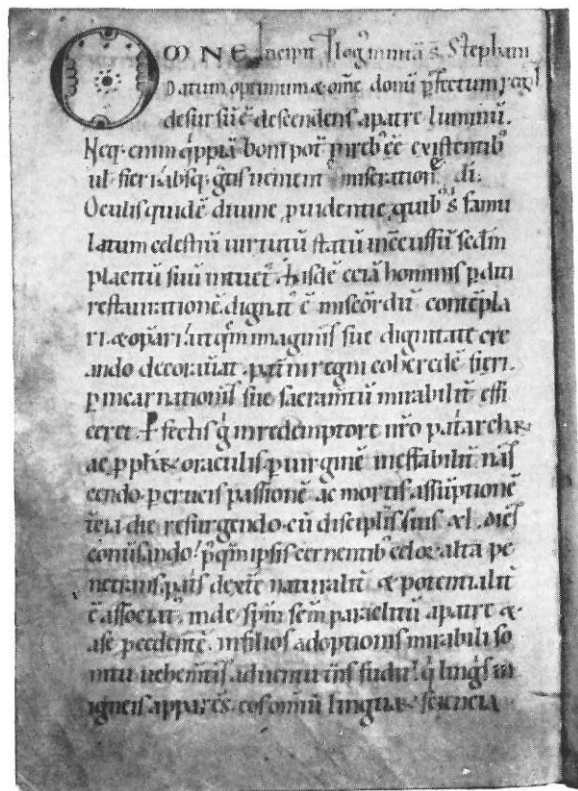 OMNE Incipit Log minus s. Stephani
Datum optimum & om̄e donū ꝑfectum, regl
desursū ē descendens a patre luminū.
Neq; enim q̄ppiā boni pot̄ in reb; eē existentib;
ul fieri absq; gr̄is uenient miseration̄e di.
Oculis quidē diuine ꝓuidentie, quib; s famu
latum celestiū uirtutū statū inc̄cussū sc̄dm
placitū suū intuet̄, hisdē etiā hominis ꝑditi
restaurationē dignat̄ ē miscd̄it̄ contēpla
ri & oꝑari, ut quē imaginis sue dignitate cre
ando decorauat, pat̄ni regni coheredē fieri,
ꝑ incarnationis sue sacram̄tū mirabilit̄ effi
ceret. Pfectis g̊ in redemptore nr̄o patriarchaꝝ
ac ꝓphetaꝝ oraculis, ꝑ uirginē ineffabilit̄ nas
cendo, ꝑ crucis passionē ac mortis assūptionē
t̄cia die resurgendo, cū discipl̄is suis xl. dieb;
conūsando, p̄q̄m ipsis cernentib; celoꝝ alta pe
netrans, pat̄s dext̄e naturalit̄ & potentialit̄
ē associat̄, inde sp̄m sc̄m paraclitū a patre &
a se ꝓcedentē, in filios adoptionis mirabili so
nitu uehem̄tis aduentu t̄ns fudit, q̊ linguis in
igneis apparēs, eos omniū linguaꝝ sciencia